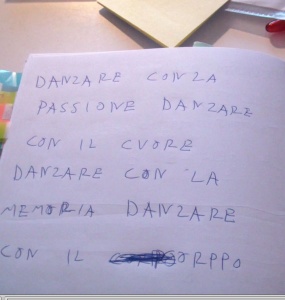 DANZARE CON LA
PASSIONE DANZARE
CON IL CVORE
DANZARE CON LA
MEMORIA DANZARE
CON IL ORPPO